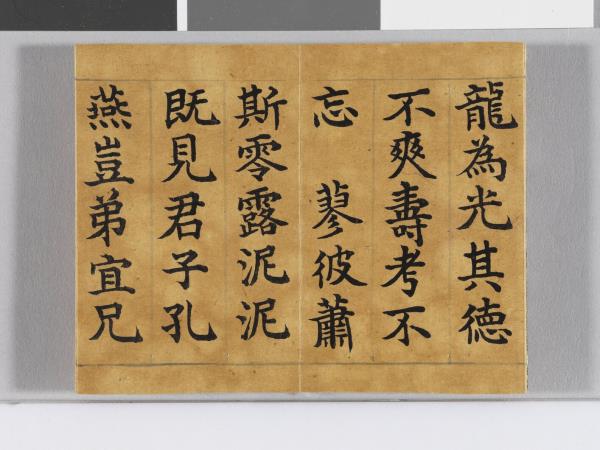 龍為光其德
不爽壽考不
忘　蓼彼蕭
斯零露泥泥
既見君子孔
燕豈弟宜兄